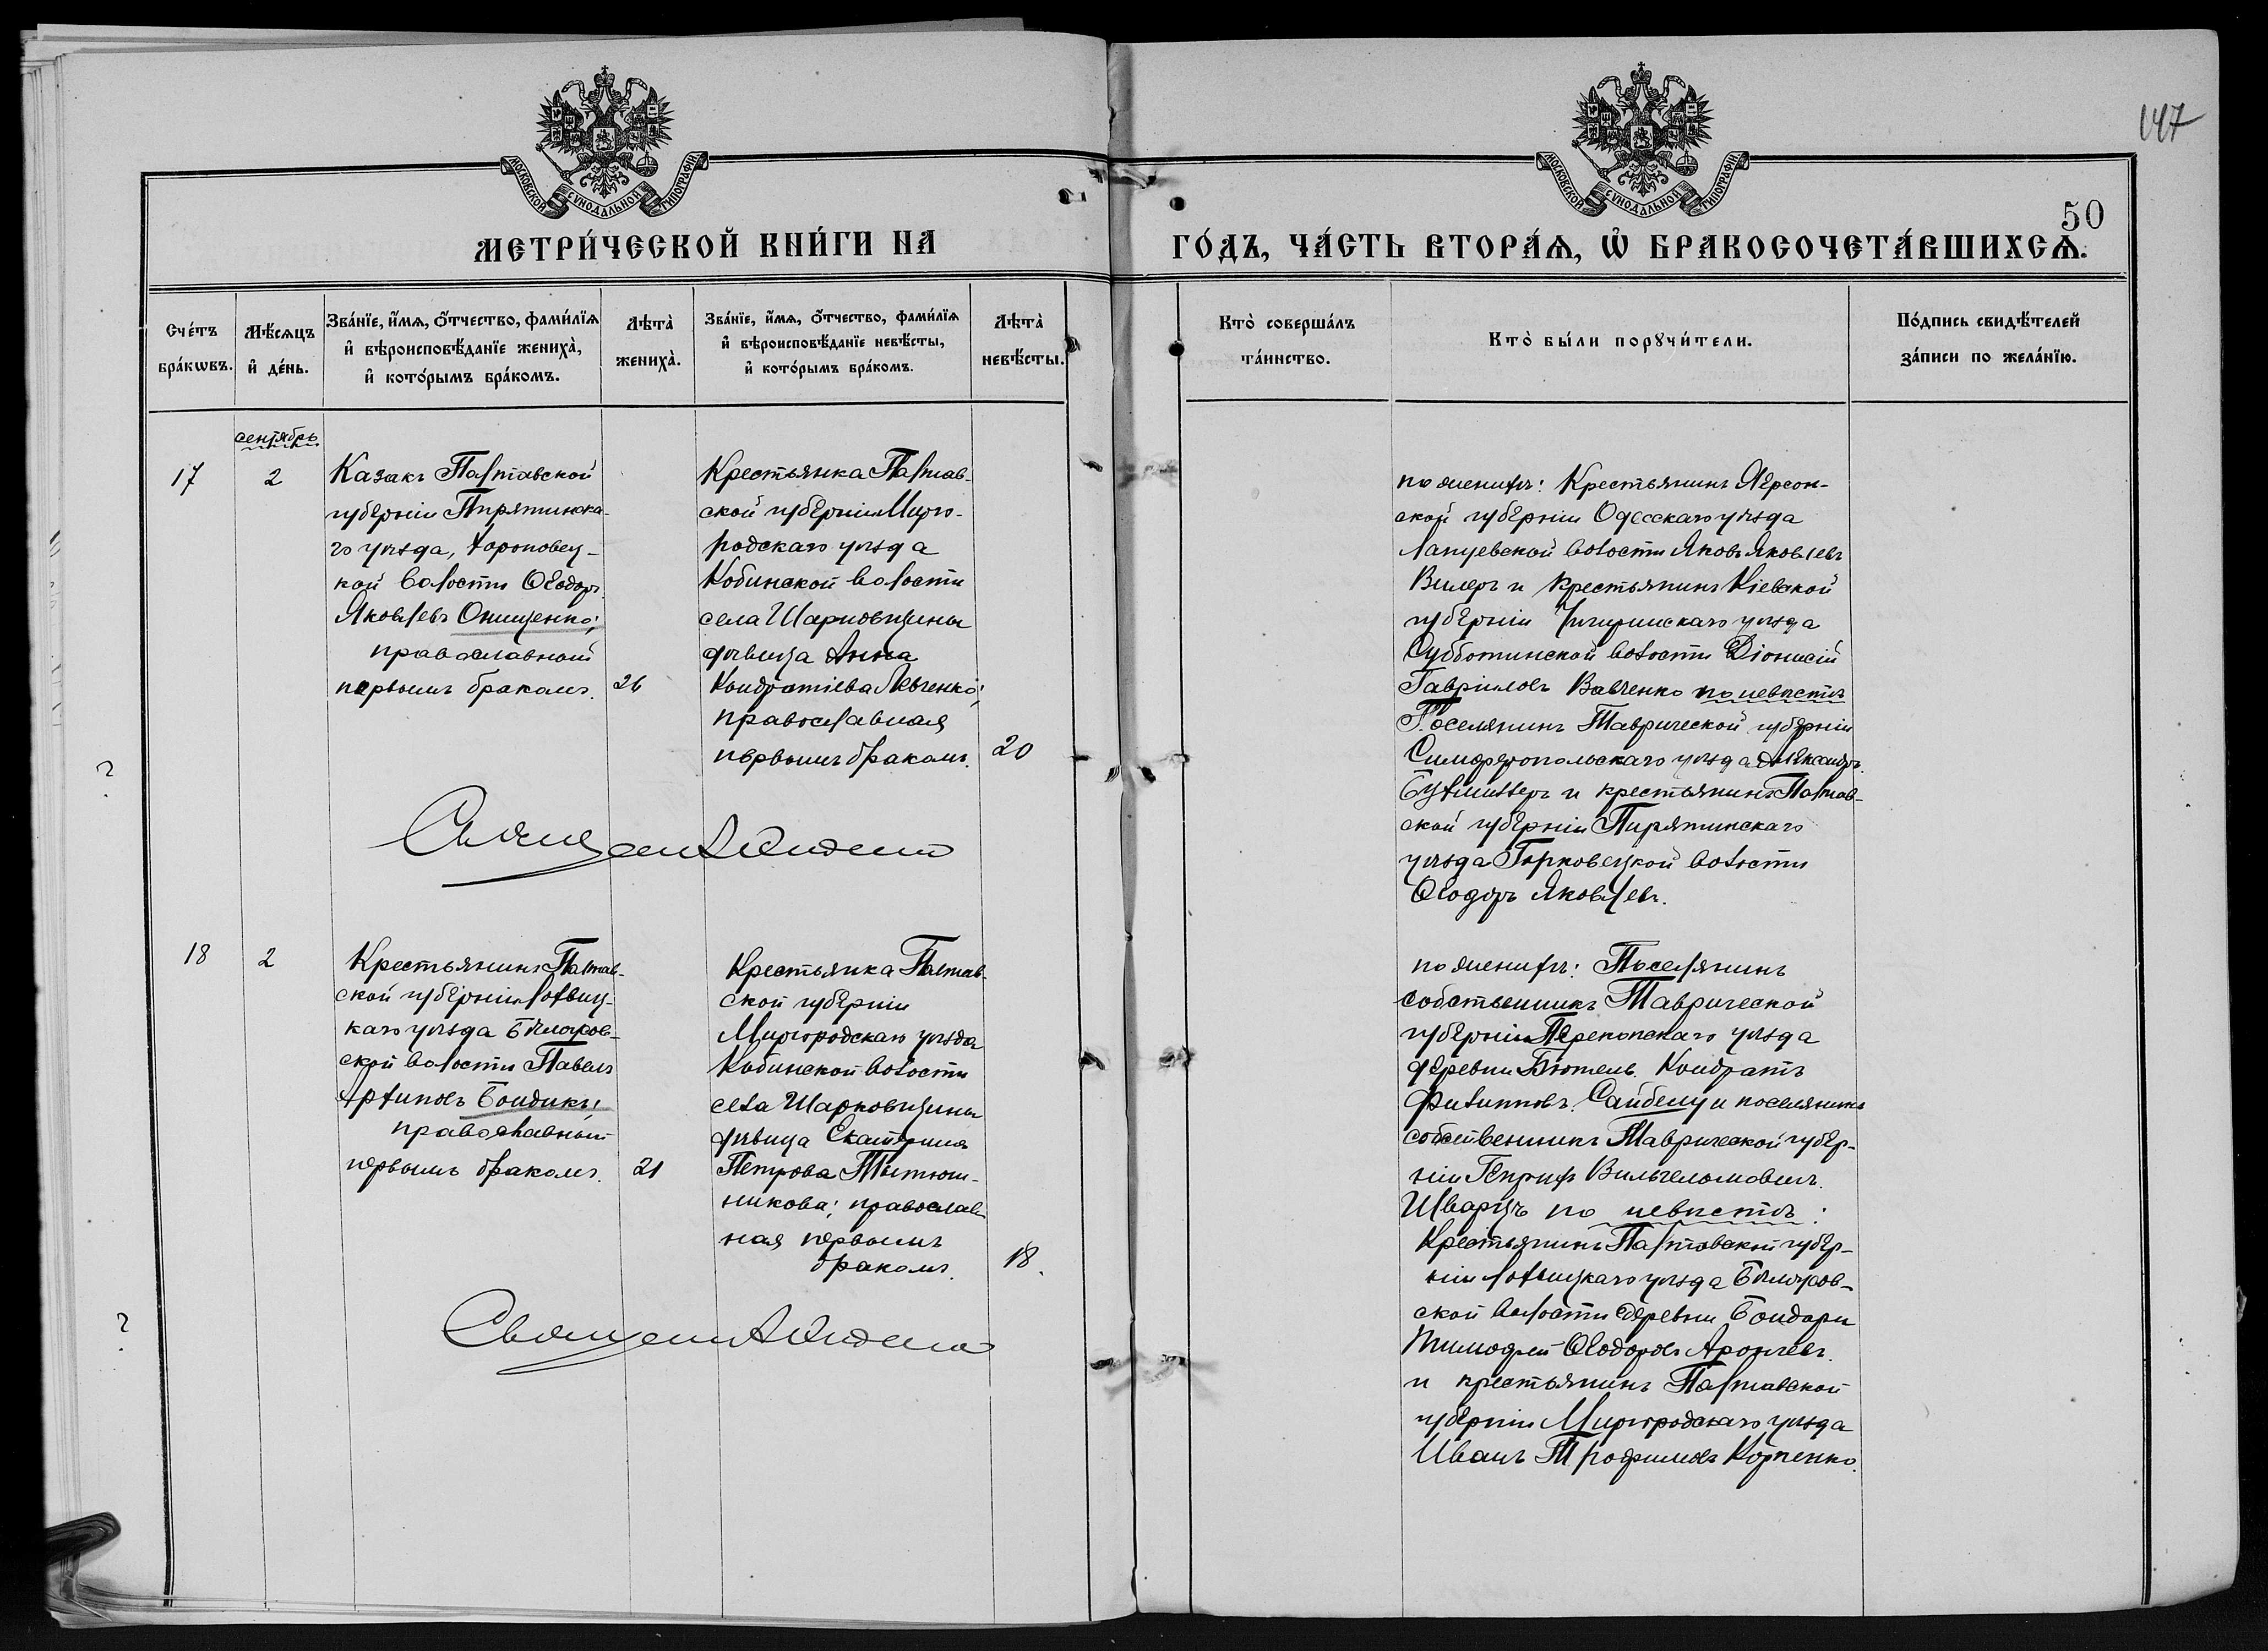 147
50
МОСКОВСКОЙ СѴНОДАЛЬНОЙ ТИПОГРАФІИ
МОСКОВСКОЙ СѴНОДАЛЬНОЙ ТИПОГРАФІИ
МЕТРИ́ЧЕСКОЙ КНИ́ГИ НА
ГО́ДЪ, ЧА́СТЬ ВТОРА́Ѧ, Ѡ҆ БРАКОСОЧЕТА́ВШИХСѦ.
Сче́тъ бра́кѡвъ.
Мѣ́сяцъ и҆ де́нь.
Зва́нїе, и҆́мѧ, ѻ҆́тчество, фами́лїѧ
и҆ вѣроисповѣ́данїе жениха̀,
и҆ кото́рымъ бра́комъ.
Лѣта̀ жениха̀.
Зва́нїе, и҆́мѧ, ѻ҆́тчество, фами́лїѧ
и҆ вѣроисповѣ́данїе невѣ́сты,
и҆ кото́рымъ бра́комъ.
Лѣта̀ невѣ́сты.
Кто̀ соверша́лъ
та́инство.
Кто̀ бы́ли порꙋчи́тели.
По́дпись свидѣ́телей
за́писи по жела́нїю.
сентябрь
17
2
Казакъ Полтавской
губерніи Пирятинска-
го уѣзда,
кой волости Ѳеодоръ
Яковлевъ Онищенко;
православный
первымъ бракомъ.
26
Крестьянка Полтав-
ской губерніи Мирго-
родскаго уѣзда
Кобинской волости
села Шарковщины
дѣвица Анна
Кондратіева Левченко;
православная
первымъ бракомъ.
20
по женихѣ: Крестьянинъ Херсон-
ской губерніи Одесскаго уѣзда
волости Яковъ Яковлевъ
Вилеръ и крестьянинъ Кіевской
губерніи Чигиринскаго уѣзда
Субботинской волости Діонисій
Гавріиловъ Вавченко по невѣстѣ
Поселянинъ Таврической губерніи
Симферопольскаго уѣзда Александръ
и крестьянинъ Полтав-
ской губерніи Пирятинскаго
уѣзда волости
Ѳеодоръ Яковлевъ.
18
2
Крестьянинъ Полтав-
ской губерніи Лохвиц-
каго уѣзда
ской волости Павелъ
Архиповъ Бондикъ;
православный
первымъ бракомъ.
21
Крестьянка Полтав-
ской губерніи
Миргородскаго уѣзда
Кобинской волости
села Шарковщины
дѣвица Екатерина
Петрова Тытюш-
никова; православ
ная первымъ
бракомъ.
18.
по женихѣ: Поселянинъ
собственникъ Таврической
губерніи Перекопскаго уѣзда
деревни Бютень Кондратъ
Филипповъ и поселянинъ
собственникъ Таврической губер-
ніи Генрихъ Вильгельмовичъ
Шварцъ по невѣстѣ:
Крестьянинъ Полтавской губер-
ніи Лохвицкаго уѣзда
ской волости деревни Бондари
Тимофей Ѳеодоровъ
и крестьянинъ Полтавской
губерніи Миргородскаго уѣзда
Иванъ Трофимовъ